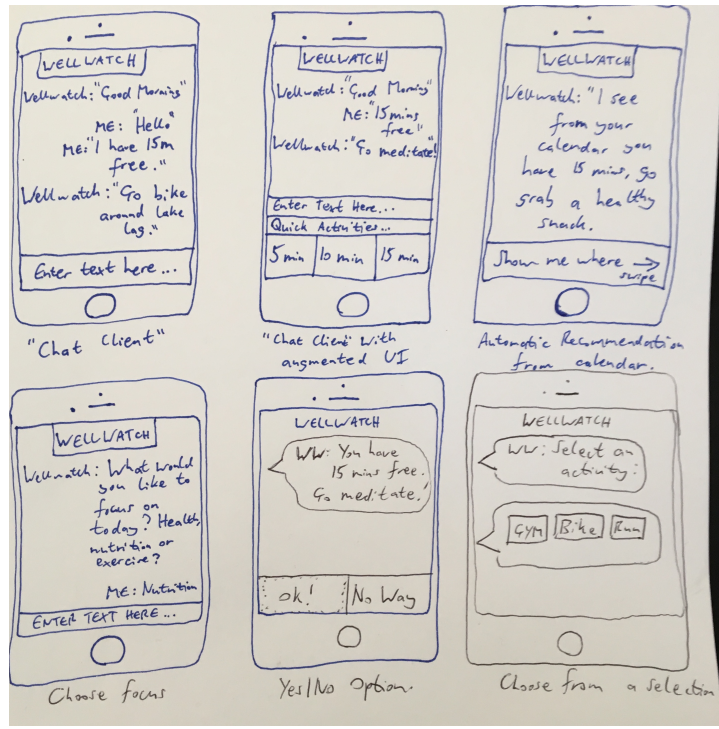 WELLWATCH
Wellwatch: "Good Morning"
ME: "Hello"
ME: "I have 15m
free."
Wellwatch: "Go bike
around lake
Lag."
Enter text here ...
"Chat Client"
WELLWATCH
Wellwatch: "Good Morning"
ME: "15 mins
free!"
Wellwatch: "Go meditate!
Enter Text Here...
Quick Activities...
5 min 10 min 15 min
"Chat Client" With
augmented UI
WELLWATCH
Wellwatch: "I see
from your
calendar you
have 15 mins, go
grab a healthy
snack.
Show me where →
swipe
Automatic Recommendation
from calendar.
WELLWATCH
Wellwatch: What would
you like to
focus on
today? Health,
nutrition or
exercise?
ME: Nutrition
ENTER TEXT HERE ...
Choose focus
WELLWATCH
WW: You have
15 mins free.
Go meditate!
ok! No Way
Yes/No Option.
WELLWATCH
WW: Select an
activity:
GYM Bike Run
Choose from a selection